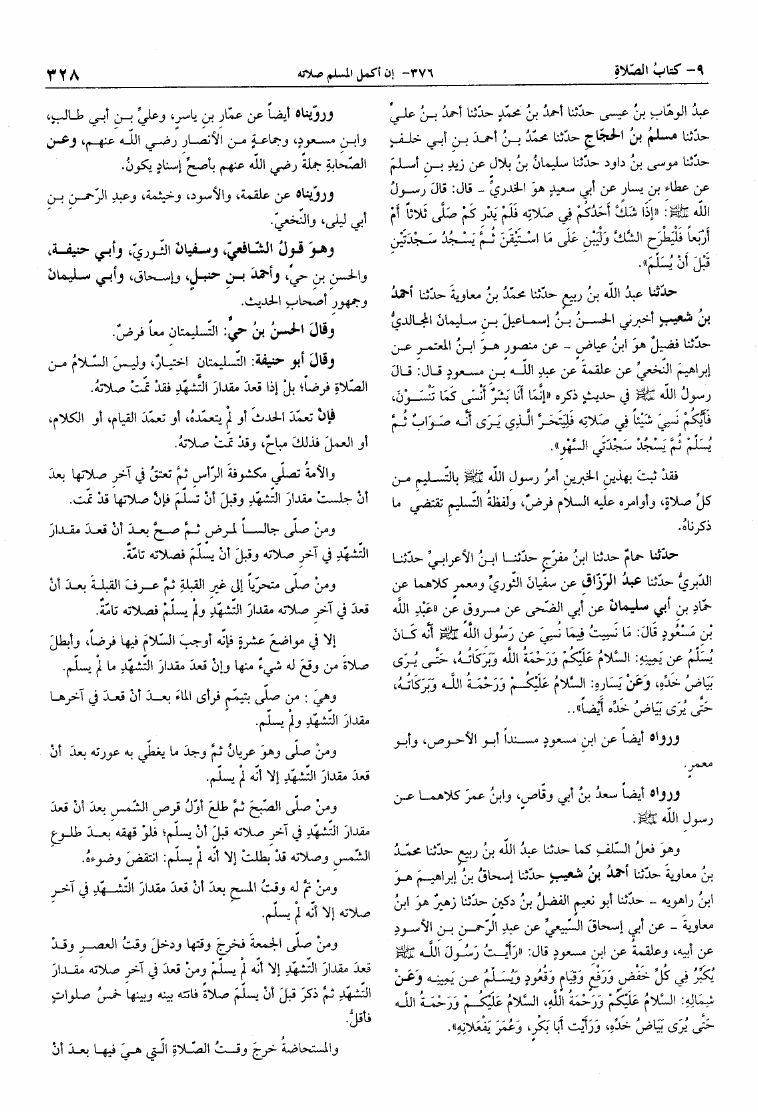 ٩- كتابُ الصّلاةِ
٣٧٦- إن أكمل المسلم صلاته
٣٢٨
عبدُ الوهّاب بنُ عيسى حدّثنا أحمدُ بنُ محمّدٍ حدّثنا أحمدُ بـنُ علـيٍّ
حدّثنا مسلمُ بنُ الحجّاجِ حدّثنا محمّدُ بـنُ أحمـدَ بـنِ أبي خلـفٍ
حدّثنا موسى بنُ داود حدّثنا سليمانُ بنُ بلال عن زيدِ بـنِ أسلـمَ
عن عطاءِ بنِ يسارٍ عن أبي سعيدٍ هوَ الخدريُّ - قال: قالَ رسـولُ
الله ﷺ: «إِذَا شَكَّ أَحَدُكُمْ فِي صَلاتِهِ فَلَمْ يَدْرِ كَمْ صَلَّى ثَلاثاً أَمْ
أَرْبَعاً فَلْيَطْرَحِ الشَّكَّ وَلْيَبْنِ عَلَى مَا اسْتَيْقَنَ ثُـمَّ يَسْـجُدُ سَـجْدَتَيْنِ
قَبْلَ أَنْ يُسَلِّمَ».
حدّثنا عبدُ الله بنُ ربيعٍ حدّثنا محمّدُ بنُ معاويةَ حدّثنا أحمدُ
بنُ شعيبٍ أخبرني الحسـنُ بـنُ إسماعيلَ بـنِ سليمانَ المجالديُّ
حدّثنا فضيلٌ هوَ ابنُ عياضٍ - عن منصورٍ هـوَ ابـنُ المعتمرِ عـن
إبراهيمَ النّخعيِّ عن علقمةَ عن عبدِ اللـه بـنِ مسعودٍ قـال: قـالَ
رسولُ الله ﷺ في حديثٍ ذكره «إِنَّمَا أَنَا بَشَرٌ أَنْسَى كَمَا تَنْسَـوْنَ،
فَأَيُّكُمْ نَسِيَ شَيْئاً فِي صَلاتِهِ فَلْيَتَحَرَّ الَّـذِي يَـرَى أَنَّـه صَـوَابٌ ثُـمَّ
يُسَلِّمْ ثُمَّ يَسْجُدْ سَجْدَتَيِ السَّهْوِ».
فقدْ ثبتَ بهذينِ الخبرينِ أمرُ رسولِ الله ﷺ بالتّسليمِ مـن
كلِّ صلاةٍ، وأوامره عليه السلام فرضٌ، ولفظةُ التّسليمِ تقتضي ما
ذكرناهُ.
حدّثنا حمامٌ حدثنا ابنُ مفرّجٍ حدّثنـا ابـنُ الأعرابـيِّ حدّثنـا
الدّبريُّ حدّثنا عبدُ الرّزّاقِ عن سفيانَ الثّوريِّ ومعمرٍ كلاهما عن
حمّادِ بنِ أبي سليمانَ عن أبي الضّحى عن مسروقٍ عن «عَبْدِ الله
بْنِ مَسْعُودٍ قَالَ: مَا نَسِيتُ فِيمَا نَسِيَ عن رَسُولِ الله ﷺ أَنَّه كَـانَ
يُسَلِّمُ عن يَمِينِهِ: السَّلامُ عَلَيْكُمْ وَرَحْمَةُ الله وَبَرَكَاتُـهُ، حَتَّـى يُـرَى
بَيَاضُ خَدِّهِ، وَعَنْ يَسَارِهِ: السَّلامُ عَلَيْكُـمْ وَرَحْمَـةُ اللـه وَبَرَكَاتُـهُ،
حَتَّى يُرَى بَيَاضُ خَدِّهِ أَيْضاً»..
ورواه أيضاً عن ابنِ مسعودٍ مسـنداً أبـو الأحـوص، وأبـو
معمرٍ.
ورواه أيضاً سعدُ بنُ أبي وقّاصٍ، وابنُ عمرَ كلاهمـا عـن
رسولِ الله ﷺ.
وهوَ فعلُ السّلفِ كما حدثنا عبدُ الله بنُ ربيعٍ حدّثنا محمّدُ
بنُ معاويةَ حدّثنا أحمدُ بنُ شعيبٍ حدّثنا إسحاقُ بنُ إبراهيـمَ هـوَ
ابنُ راهويه - حدّثنا أبو نعيمٍ الفضلُ بنُ دكينٍ حدّثنا زهيرٌ هوَ ابنُ
معاويةَ - عن أبي إسحاقَ السّبيعيِّ عن عبدِ الرّحمـنِ بـنِ الأسودِ
عن أبيه، وعلقمةَ عن ابنِ مسعودٍ قال: «رَأَيْـتُ رَسُـولَ اللـه ﷺ
يُكَبِّرُ فِي كُلِّ خَفْضٍ وَرَفْعٍ وَقِيَامٍ وَقُعُودٍ وَيُسَـلِّمُ عـن يَمِينِـهِ وَعَـنْ
شِمَالِهِ: السَّلامُ عَلَيْكُمْ وَرَحْمَةُ اللَّهِ، السَّلامُ عَلَيْكُـمْ وَرَحْمَـةُ اللـه
حَتَّى يُرَى بَيَاضُ خَدِّهِ، وَرَأَيْت أَبَا بَكْرٍ، وَعُمَرَ يَفْعَلانِهِ».
وروّيناه أيضاً عن عمّارِ بنِ ياسرٍ، وعليِّ بـنِ أبـي طـالبٍ،
وابنِ مسعودٍ، وجماعةٍ مـن الأنصـارِ رضـي اللـه عنهـم، وعـن
الصّحابةِ جملةً رضي الله عنهم بأصحِّ إسنادٍ يكونُ.
وروّيناه عن علقمة، والأسود، وخيثمة، وعبدِ الرّحمـنِ بـنِ
أبي ليلى، والنّخعيِّ.
وهـوَ قـولُ الشّـافعيِّ، وسفيانَ الثّـوريِّ، وأبـي حنيفـة،
والحسنِ بنِ حيٍّ، وأحمدَ بـنِ حنبـلٍ، وإسـحاق، وأبـي سـليمانَ
وجمهورِ أصحابِ الحديثِ.
وقالَ الحسنُ بنُ حيٍّ: التّسليمتان معاً فرضٌ.
وقالَ أبو حنيفة: التّسليمتانِ اختيـارٌ، وليـسَ السّـلامُ مـن
الصّلاةِ فرضاً؛ بلْ إذا قعدَ مقدارَ التّشهّدِ فقدْ تمّتْ صلاتهُ.
فإنْ تعمّدَ الحدثَ أو لمْ يتعمّدهُ، أو تعمّدَ القيام، أو الكلام،
أو العملَ فذلكَ مباحٌ، وقدْ تمّتْ صلاتهُ.
والأمةُ تصلّي مكشوفةَ الرّأسِ ثمَّ تعتقُ في آخرِ صلاتها بعدَ
أنْ جلستْ مقدارَ التّشهّدِ وقبلَ أنْ تسلّمَ فإنَّ صلاتها قدْ تمّت.
ومنْ صلّى جالسـاً لمـرضٍ ثـمَّ صـحَّ بعـدَ أنْ قعـدَ مقـدارَ
التّشهّدِ في آخرِ صلاته وقبلَ أنْ يسلّمَ فصلاته تامّةٌ.
ومنْ صلّى متحرّياً إلى غيرِ القبلةِ ثمَّ عـرفَ القبلـةَ بعـدَ أنْ
قعدَ في آخرِ صلاته مقدارَ التّشهّدِ ولمْ يسلّمْ فصلاته تامّةٌ.
إلا في مواضعَ عشرةٍ فإنّه أوجبَ السّلامَ فيها فرضاً، وأبطلَ
صلاةَ من وقعَ له شيءٌ منها وإنْ قعدَ مقدارَ التّشهّدِ ما لمْ يسلّم.
وهيَ: من صلّى بتيمّمٍ فرأى الماءَ بعـدَ أنْ قعـدَ في آخرهـا
مقدارَ التّشهّدِ ولمْ يسلّم.
ومنْ صلّى وهوَ عريانٌ ثمَّ وجدَ ما يغطّي به عورته بعدَ أنْ
قعدَ مقدارَ التّشهّدِ إلا أنّه لمْ يسلّم.
ومنْ صلّى الصّبحَ ثمَّ طلعَ أوّلُ قرصِ الشّمسِ بعدَ أنْ قعدَ
مقدارَ التّشهّدِ في آخرِ صلاته قبلَ أنْ يسلّم؛ فلوْ قهقه بعـدَ طلـوعِ
الشّمسِ وصلاته قدْ بطلتْ إلا أنّه لمْ يسلّم: انتقضَ وضوءهُ.
ومنْ تمَّ له وقتُ المسحِ بعدَ أنْ قعدَ مقدارَ التّشـهّدِ في آخـرِ
صلاته إلا أنّه لمْ يسلّم.
ومنْ صلّى الجمعةَ فخرجَ وقتها ودخلَ وقتُ العصـرِ وقـدْ
قعدَ مقدارَ التّشهّدِ إلا أنّه لمْ يسلّمْ ومنْ قعدَ في آخرِ صلاته مقـدارَ
التّشهّدِ ثمَّ ذكرَ قبلَ أنْ يسلّمَ صلاةً فاتته بينه وبينها خمسُ صلواتٍ
فأقلُّ.
والمستحاضةُ خرجَ وقـتُ الصّلاةِ الّـتي هـيَ فيهـا بعـدَ أنْ